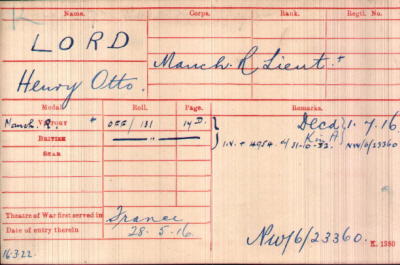 Name. Corps. Rank. Regtl. No.
LORD
Manch. R Lieut. +
Henry Otto.
Medal. Roll. Page. Remarks.
Manch. R. +
VICTORY OFF/131 14 D. Decd 1.7.16
BRITISH " "
I.V. + 31-10-32. NW/6/23360
STAR
Theatre of War first served in France
Date of entry therein 28.5.16
NW/6/23360. K. 1380
16322.